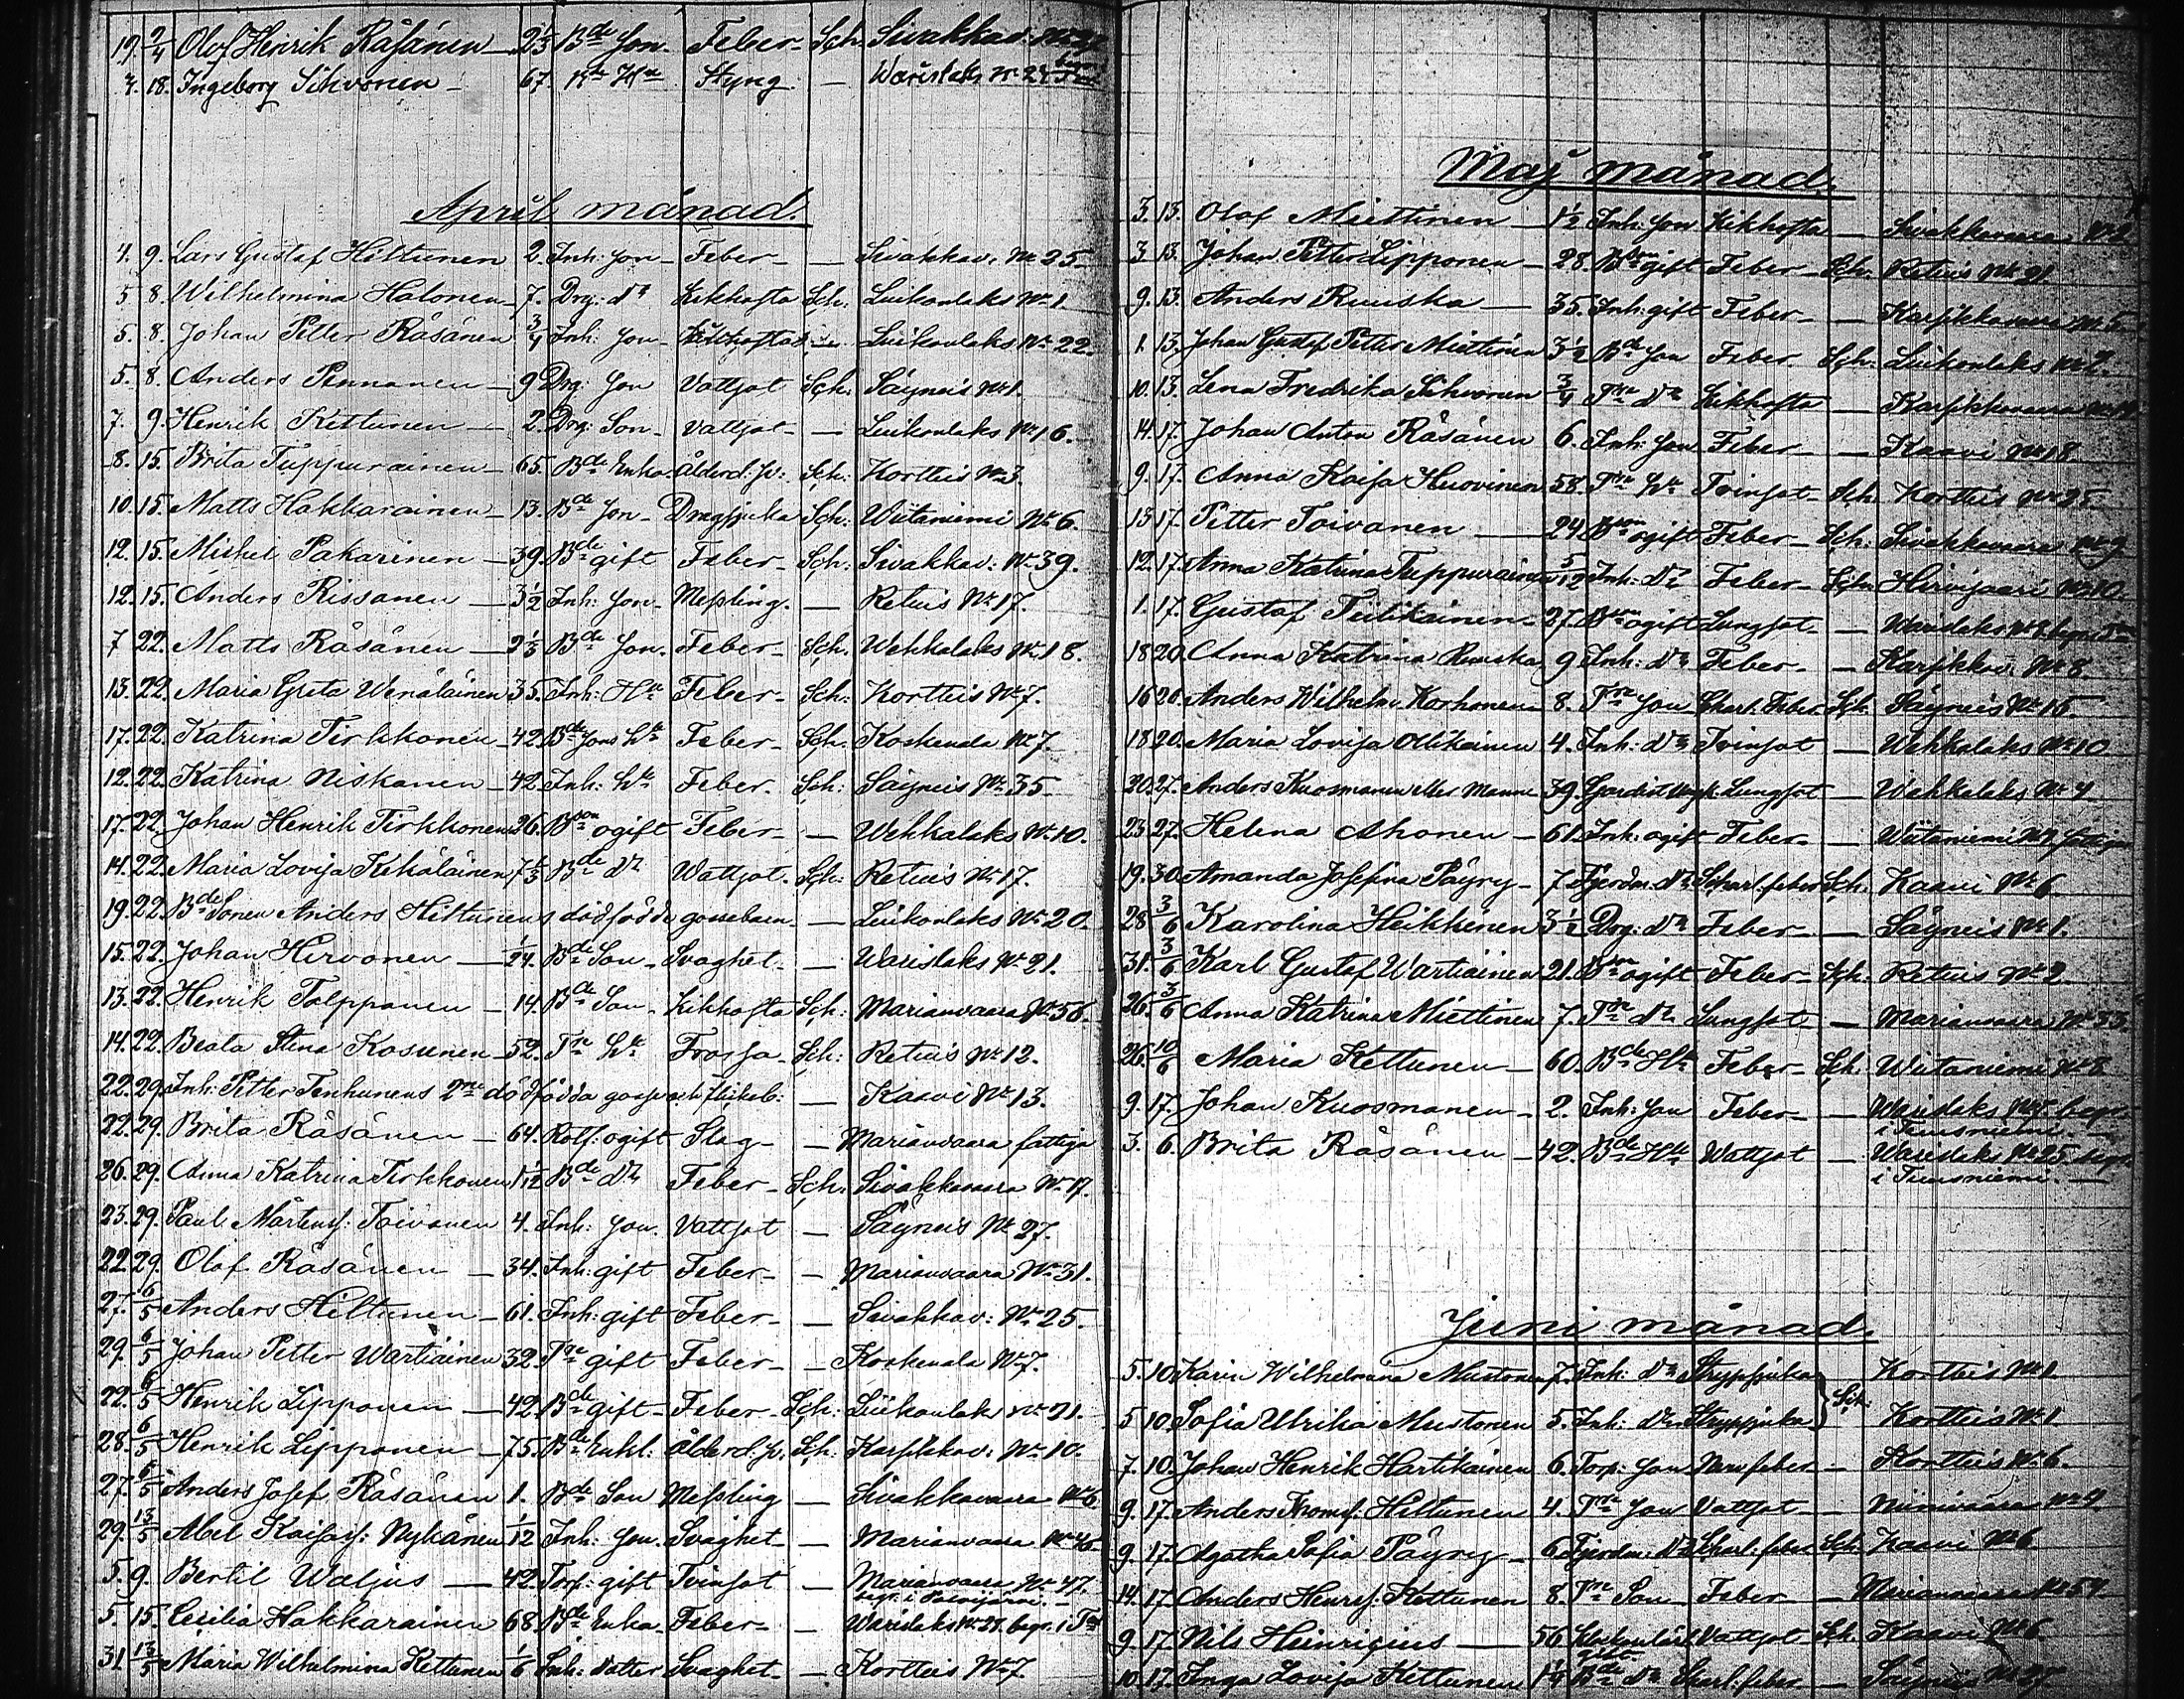 19. 2/4 Olof Henrik Räsänen — 2 1/3 Bde Son. Feber — Sch. Sivakkav.
4. 18. Ingeborg Sihvonen — 67. Hu Styng — Warislaks Nr 24
April månad.
4. 9. Lars Gustaf Hiltunen 2. Inh: Son — Feber — — Sivakkav: Nr 25
5 8. Wilhelmina Halonen — 7. Drg: dr Kikhosta Sch: Luikonlaks Nr 1.
5. 8. Johan Petter Räsänen 3/4 Inh: Son — Kikhosta — Luikonlaks Nr 22.
5. 8. Anders Pennanen — 9 Drg: Son Vattsot Sch: Säyneis Nr 1.
7. 9. Henrik Kettunen — 2. Drg: Son — Vattsot — — Luikonlaks Nr 16.
8. 15. Brita Tuppurainen — 65. Bde Enka. Ålderd: sv: Sch: Kortteis Nr 3.
10. 15. Matts Hakkarainen — 13. Bde Son — Dragsjuka Sch: Wiitaniemi Nr 6.
12. 15. Mickel Pakarinen — 39. Bde gift Feber — Sch: Sivakkav: Nr 39.
12. 15. Anders Rissanen — 3 1/2 Inh: Son — Messling. — Retuis Nr 17.
7 22. Matts Räsänen — 2 1/3 Bde Son. Feber — Sch: Wehkalaks Nr 18.
13. 22. Maria Greta Wenäläinen 35. Inh: Hu Feber — Sch: Kortteis Nr 7.
17. 22. Katrina Tirkkonen — 42. Bde Sons Hu Feber — Sch. Koskenala Nr 7.
12. 22. Katrina Niskanen — 42. Inh: Hu Feber. Sch: Säyneis Nr 35.
17. 22. Johan Henrik Tirkkonen 26. Bson ogift Feber — — Wehkalaks Nr 10.
14. 22. Maria Lovisa Kekäläinen 7 1/3 Bde dr Wattsot. Sch: Retuis Nr 17.
19. 22. Bde Sonen Anders Hiltunens dödfödde gossebarn — — Luikonlaks Nr 20.
15. 22. Johan Hirvonen — 1/24. Bde Son — Svaghet — — Warislaks Nr 21.
13. 22. Henrik Tolppanen — 14. Bde Son — Kikhosta Sch: Marianvaara Nr 56.
14. 22. Beata Stina Kosunen — 52. Trn Hu Frossa — Sch: Retuis Nr 12.
22. 29. Inh: Petter Tenhunens 2ne dödfödda gosse och flickeb: — Kaavi Nr 13.
22. 29. Brita Räsänen — 64. Rotf: ogift Slag — — Marianvaara fattiga
26. 29. Anna Katrina Tirkkonen 1 1/12 Bde dr Feber — Sch: Sivakkavaara Nr 17.
23. 29. Paul Mårtenss: Toivanen 4. Inh: Son. Vattsot — Säyneis Nr 27.
22 29. Olof Räsänen — 34. Inh: gift Feber — — Marianvaara Nr 31.
27. 6/5 Anders Hiltunen — 61. Inh: gift Feber — — Sivakkav: Nr 25.
29. 6/5 Johan Petter Wartiainen 32. Trn gift Feber — — Koskenala Nr 7.
22. 6/5 Henrik Lipponen — 42. Bde gift — Feber — Sch: Luikonlak Nr 21.
28. 6/5 Henrik Lipponen — 75. Bde Enkl: Ålderd. sv. Sch: Karsikkav: Nr 10.
27. 6/5 Anders Josef Räsänen 1. Bde Son Messling — Sivakkavaara Nr 6
29. 13/5 Abel Kaisas: Nykänen 1/12 Inh: Son. Svaghet — — Marianvaara Nr 46
5. 9. Bertil Waljus — 42. Torp: gift Tvinsot — Marianvaara Nr 47.
begr. i Polvijärvi. —
5. 15. Cecilia Hakkarainen 68. Bde Enka — Feber — — Warislaks Nr 28. begr. i
31 13/5 Maria Wilhelmina Kettunen 1/6 Inh: dotter Svaghet — — Kortteis Nr 7
Maj månad.
3. 13. Olof Miettinen — 1 1/2 Inh: Son Kikhosta — Sivakkavaara Nr 2
3 13. Johan Petter Lipponen — 28. Bson gift Feber — Sch. Retuis Nr 21.
9. 13. Anders Ruuska — 35. Inh: gift Feber — — Karsikkavaara Nr 5
1. 13. Johan Gustaf Petter Miettinen 3 1/2 Bde Son Feber. Sch. Luikonlaks Nr 2.
10. 13. Lena Fredrika Sihvonen 3/4 Trn dr Kikhosta — Karsikkavaara
14. 17. Johan Anton Räsänen 6. Inh: Son Feber — — Kaavi Nr 18
9. 17. Anna Kaisa Huovinen 58. Trn Hu Tvinsot — Sch. Kortteis Nr 25.
13 17. Petter Toivanen — 24 Bson ogift Feber — Sch: Sivakkavaara Nr 9
12. 17. Anna Katrina Tuppurainen 5/12 Inh: dr Feber — Sch. Hirvijaari Nr 10
1. 17. Gustaf Teilikainen — 27. Bson ogift Lungsot — — Warislaks Nr 8. begr.
18 20. Anna Katrina Ruuska 9 Inh: dr Feber — — Karsikkav: Nr 8.
16 20. Anders Wilhelm Korhonen 8. Trn Son Skarl. Feber Sch. Säyneis Nr 15.
18 20. Maria Lovisa Ollikainen 4. Inh: dr Tvinsot — Wehkalaks Nr 10
20. 27. Anders Kuosmanen eller Manne 39. Gardist Lungsot — Wehkalaks Nr 4
23 27. Helena Ahonen — 61. Inh: ogift Feber — — Wiitaniemi Nr 7 fattiga
19. 30. Amanda Josefina Päyry — 7 Fjerdm. dr Skarl. feber Sch. Kaavi Nr 6
28 3/6 Karolina Heikkinen 3 1/2 Drg: dr Feber — — Säyneis Nr 1.
31. 3/6 Karl Gustaf Wartiainen 21. Bson ogift Feber — Sch. Retuis Nr 2.
26. 3/6 Anna Katrina Miettinen 7. Trn dr Lungsot — Marianvaara Nr 33.
26. 10/6 Maria Kettunen — 60. Bde Hu Feber — Sch. Wiitaniemi Nr 8
9. 17. Johan Kuosmanen — 2. Inh: Son Feber — — Warislaks begr.
i Tuusniemi. —
3. 6. Brita Räsänen — 42. Bde Hu Wattsot — Warislaks Nr 25. begr.
i Tuusniemi. —
Juni månad.
5. 10. Karin Wilhelmina Mustonen 7. Inh: dr Strypsjuka Kortteis Nr 1
5 10. Sofia Ulrika Mustonen 5. Inh: dr Strypsjuka } Sch. Kortteis Nr 1
7. 10. Johan Henrik Hartikainen 6. Torp: Son feber — Kortteis Nr 6.
9. 17. Anders Thomss: Hiltunen 4. Trn Son Vattsot — Niinivaara Nr 4
9. 17. Agatha Sofia Päyry — 6 Fjerdm: dr Skarl: feber Sch. Kaavi Nr 6
14. 17. Anders Henrss: Kettunen 8. Trn Son — Feber — Marianvaara Nr 54.
9. 17 Nils Heinricius — 56 gift Vattsot Sch. Kaavi Nr 6
10. 17. Inga Lovisa Kettunen 1 1/4 Bde dr Skarl: feber — Säyneis